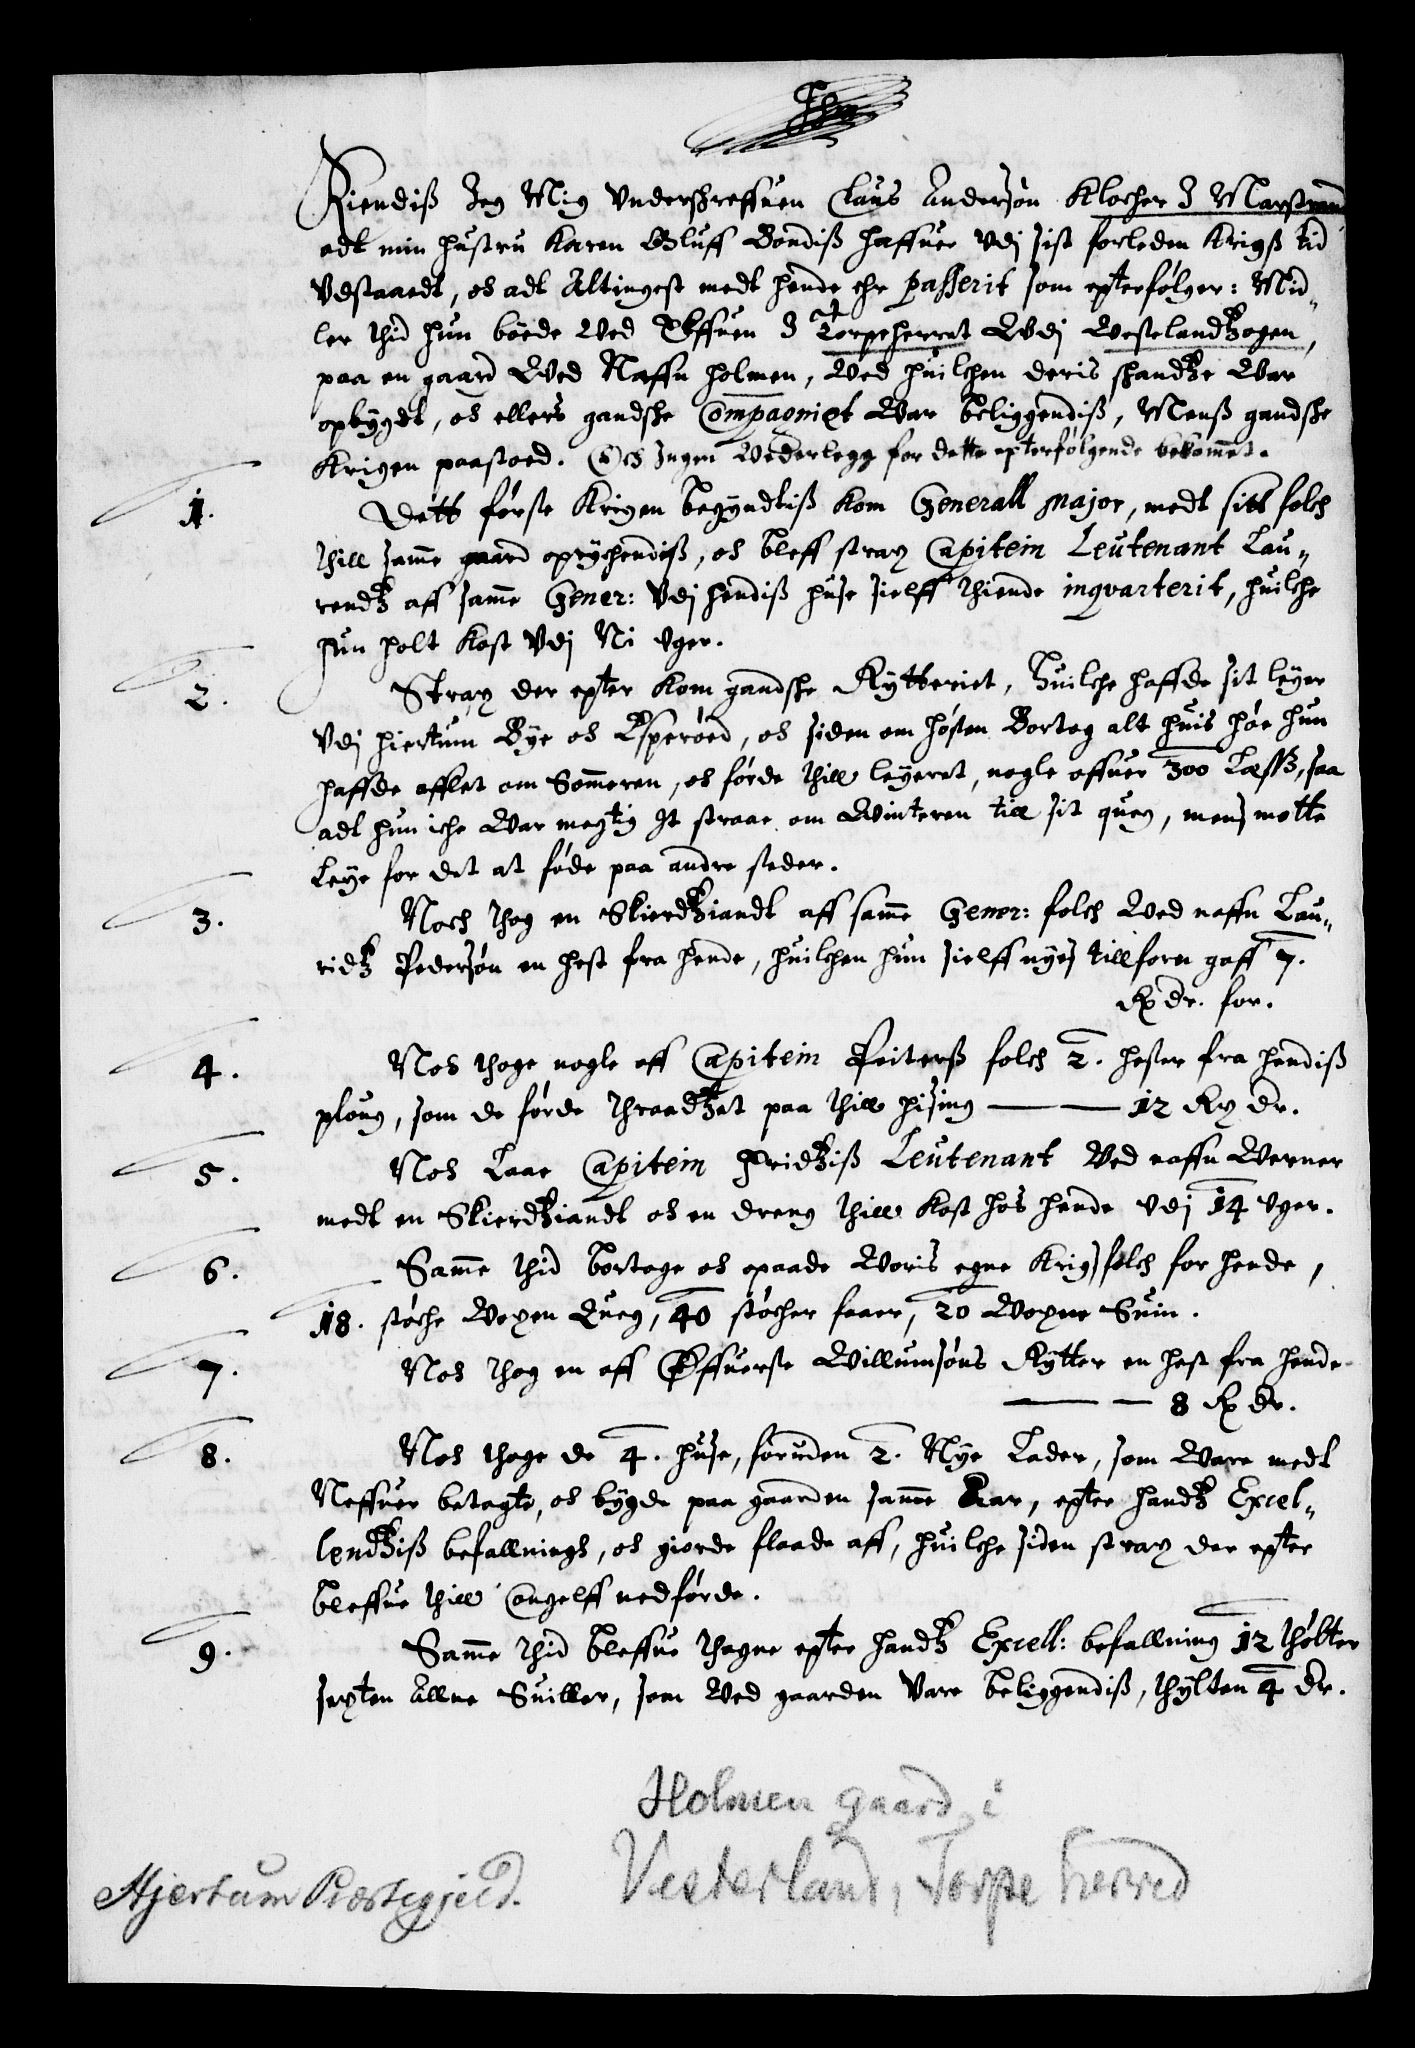 Kiendiß Jeg Mig Underskreffuen Claus Andersøn Klocher I Marstrand
adt min hustru Karen Gluff Bondiß haffuer Udj sist forleden Krigß tid
Udstaaedt, och adt Altingest medt hende ehr passerit som epterfølger: Mid„
ler thid hun boede Ved Elffuen I Torpeherret Udj Vestelandtzogen,
paa en gaard Ved Naffn holmen, Ved huilchen deris skandtze Var
opbygdt, och ellers gandske Compagniet Var beliggendiß, Menß gandske
Krigen paastoed. Och Ingen Vederlegg for dette epterfølgende bekommet.
1. Dett første Krigen begyndtiß kom Generall Major, medt sitt folch
thill samme gaard oprychendiß, och bleff strax Capitein Leutenant Lau„
rendtz aff samme Gener: Udj hendiß huse sielff thiende inqvarterit, huilche
hun holt kost Udj Ni Uger.
2. Strax der epter kom gandske Rytteriet, Huilche haffde sit leyer
Udj hiertum Bye och Esperøed, och siden om høsten Bortog alt huis høe hun
haffde afflet om Sommeren, och førde thill leyeret, nogle offuer 300 Læss, saa
adt hun iche Var megtig It straae om Vinteren till sit queg, mens motte
Leye for det at føde paa andre steder.
3. Noch thog en Skierdtziandt aff samme Gener: folch Ved naffn Lau„
ridtz Pedersøn en hest fra hende, huilchen hun sielff nyes tillforn gaff 7.
Rx dr. for.
4. Noch thoge nogle aff Capitein Peiterß folch 2. hester fra hendiß
ploug, som de førde thraadtzet paa thill hising — — 12 Rx dr.
5. Noch Laae Capitein Fridtziß Leutenant Ved naffn Verner
medt en Skierdtziandt och en dreng thill Kost hos hende Udj 14 Uger.
6. Samme thid bortoge och opaade Voris egne Krigsfolch for hende,
18. støche Voxen Queg, 40 støcher faaer, 20 Voxne Suin.
7. Noch thog en aff Offuerste Villumsøns Rytter en hest fra hende
— — 8 Rx dr.
8. Noch thoge de 4. huse, foruden 2. Nye Lader, som Vare medt
Neffuer betagte, och bygde paa gaarden samme Aar, epter handtz Excel„
lendtziß befallningh, och giorde flaade aff, huilche siden strax der epter
bleffue thill Congelff nedførde.
9. Samme thid bleffue thagne epter handtz Excell: befallning 12 thølter
sexten Allne Suiller, som Ved gaarden Vare beliggendiß, thylten 4 Dr.
Holmen gaard i
Vesterland, Torpe herred
Hjertum Præstegjeld.